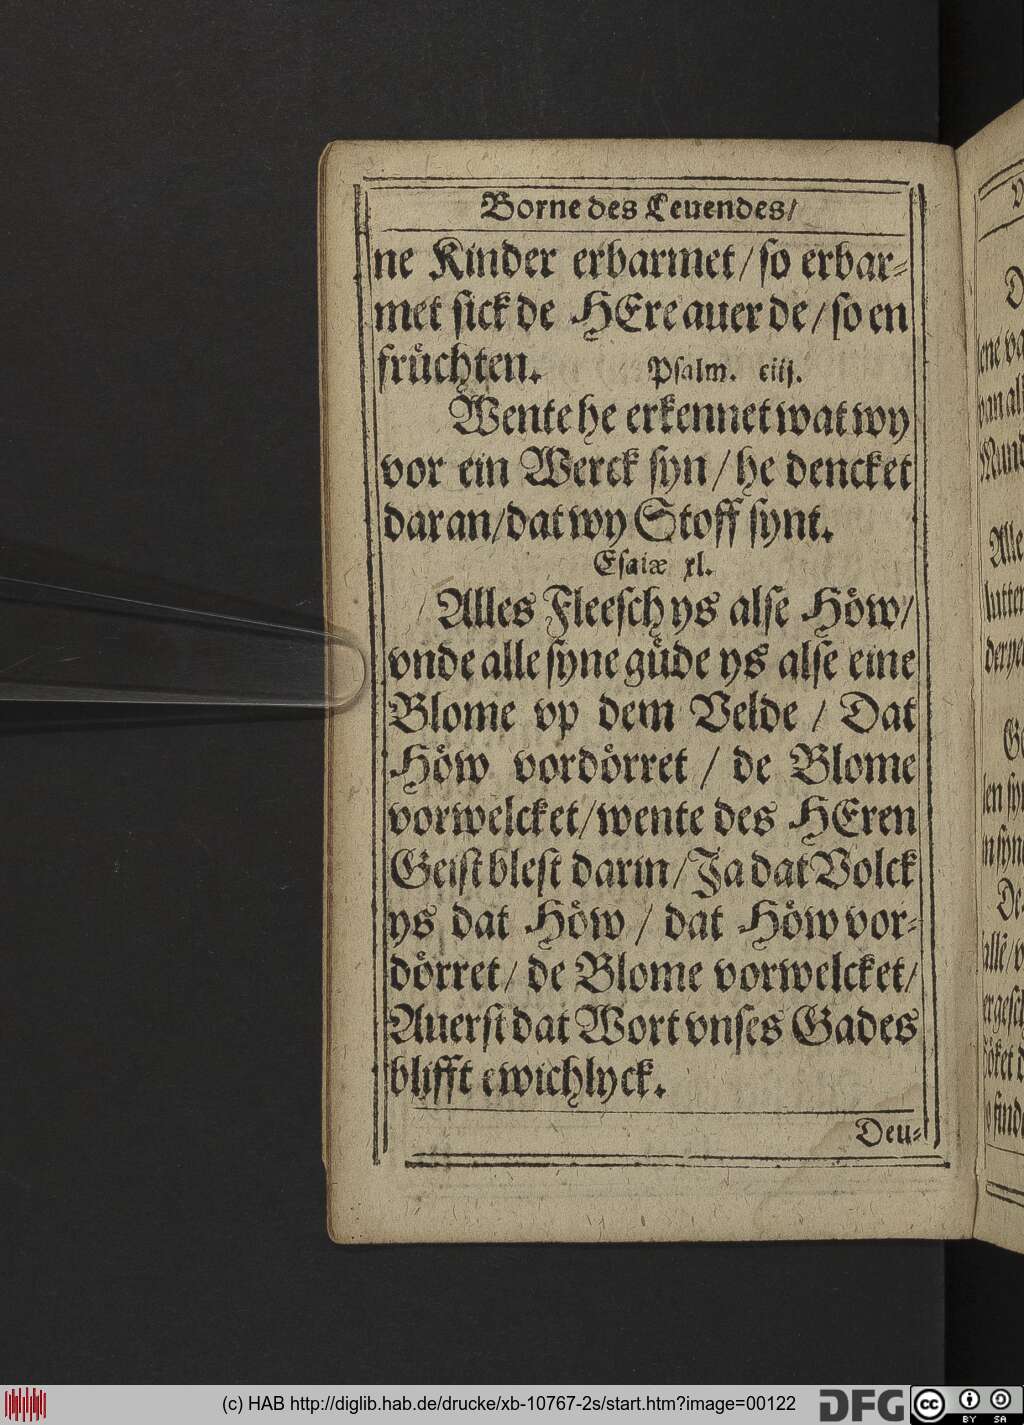 Borne des Leuendes/
ne Kinder erbarmet/ so erbar⸗
met sick de HEre auer de/ so en
früchten. Psalm. ciij.
Wente he erkennet wat wy
vor ein Werck syn/ he dencket
daran/ dat wy Stoff synt.
Esaiæ xl.
Alles Fleesch ys alse Höw/
vnde alle syne güde ys alse eine
Blome vp dem Velde / Dat
Höw vordörret / de Blome
vorwelcket/ wente des HEren
Geist blest darin/ Ja dat Volck
ys dat Höw / dat Höw vor⸗
dörret/ de Blome vorwelcket/
Auerst dat Wort vnses Gades
blifft ewichlyck.
Deu⸗
(c) HAB http://diglib.hab.de/drucke/xb-10767-2s/start.htm?image=00122
DFG
cc
BY SA